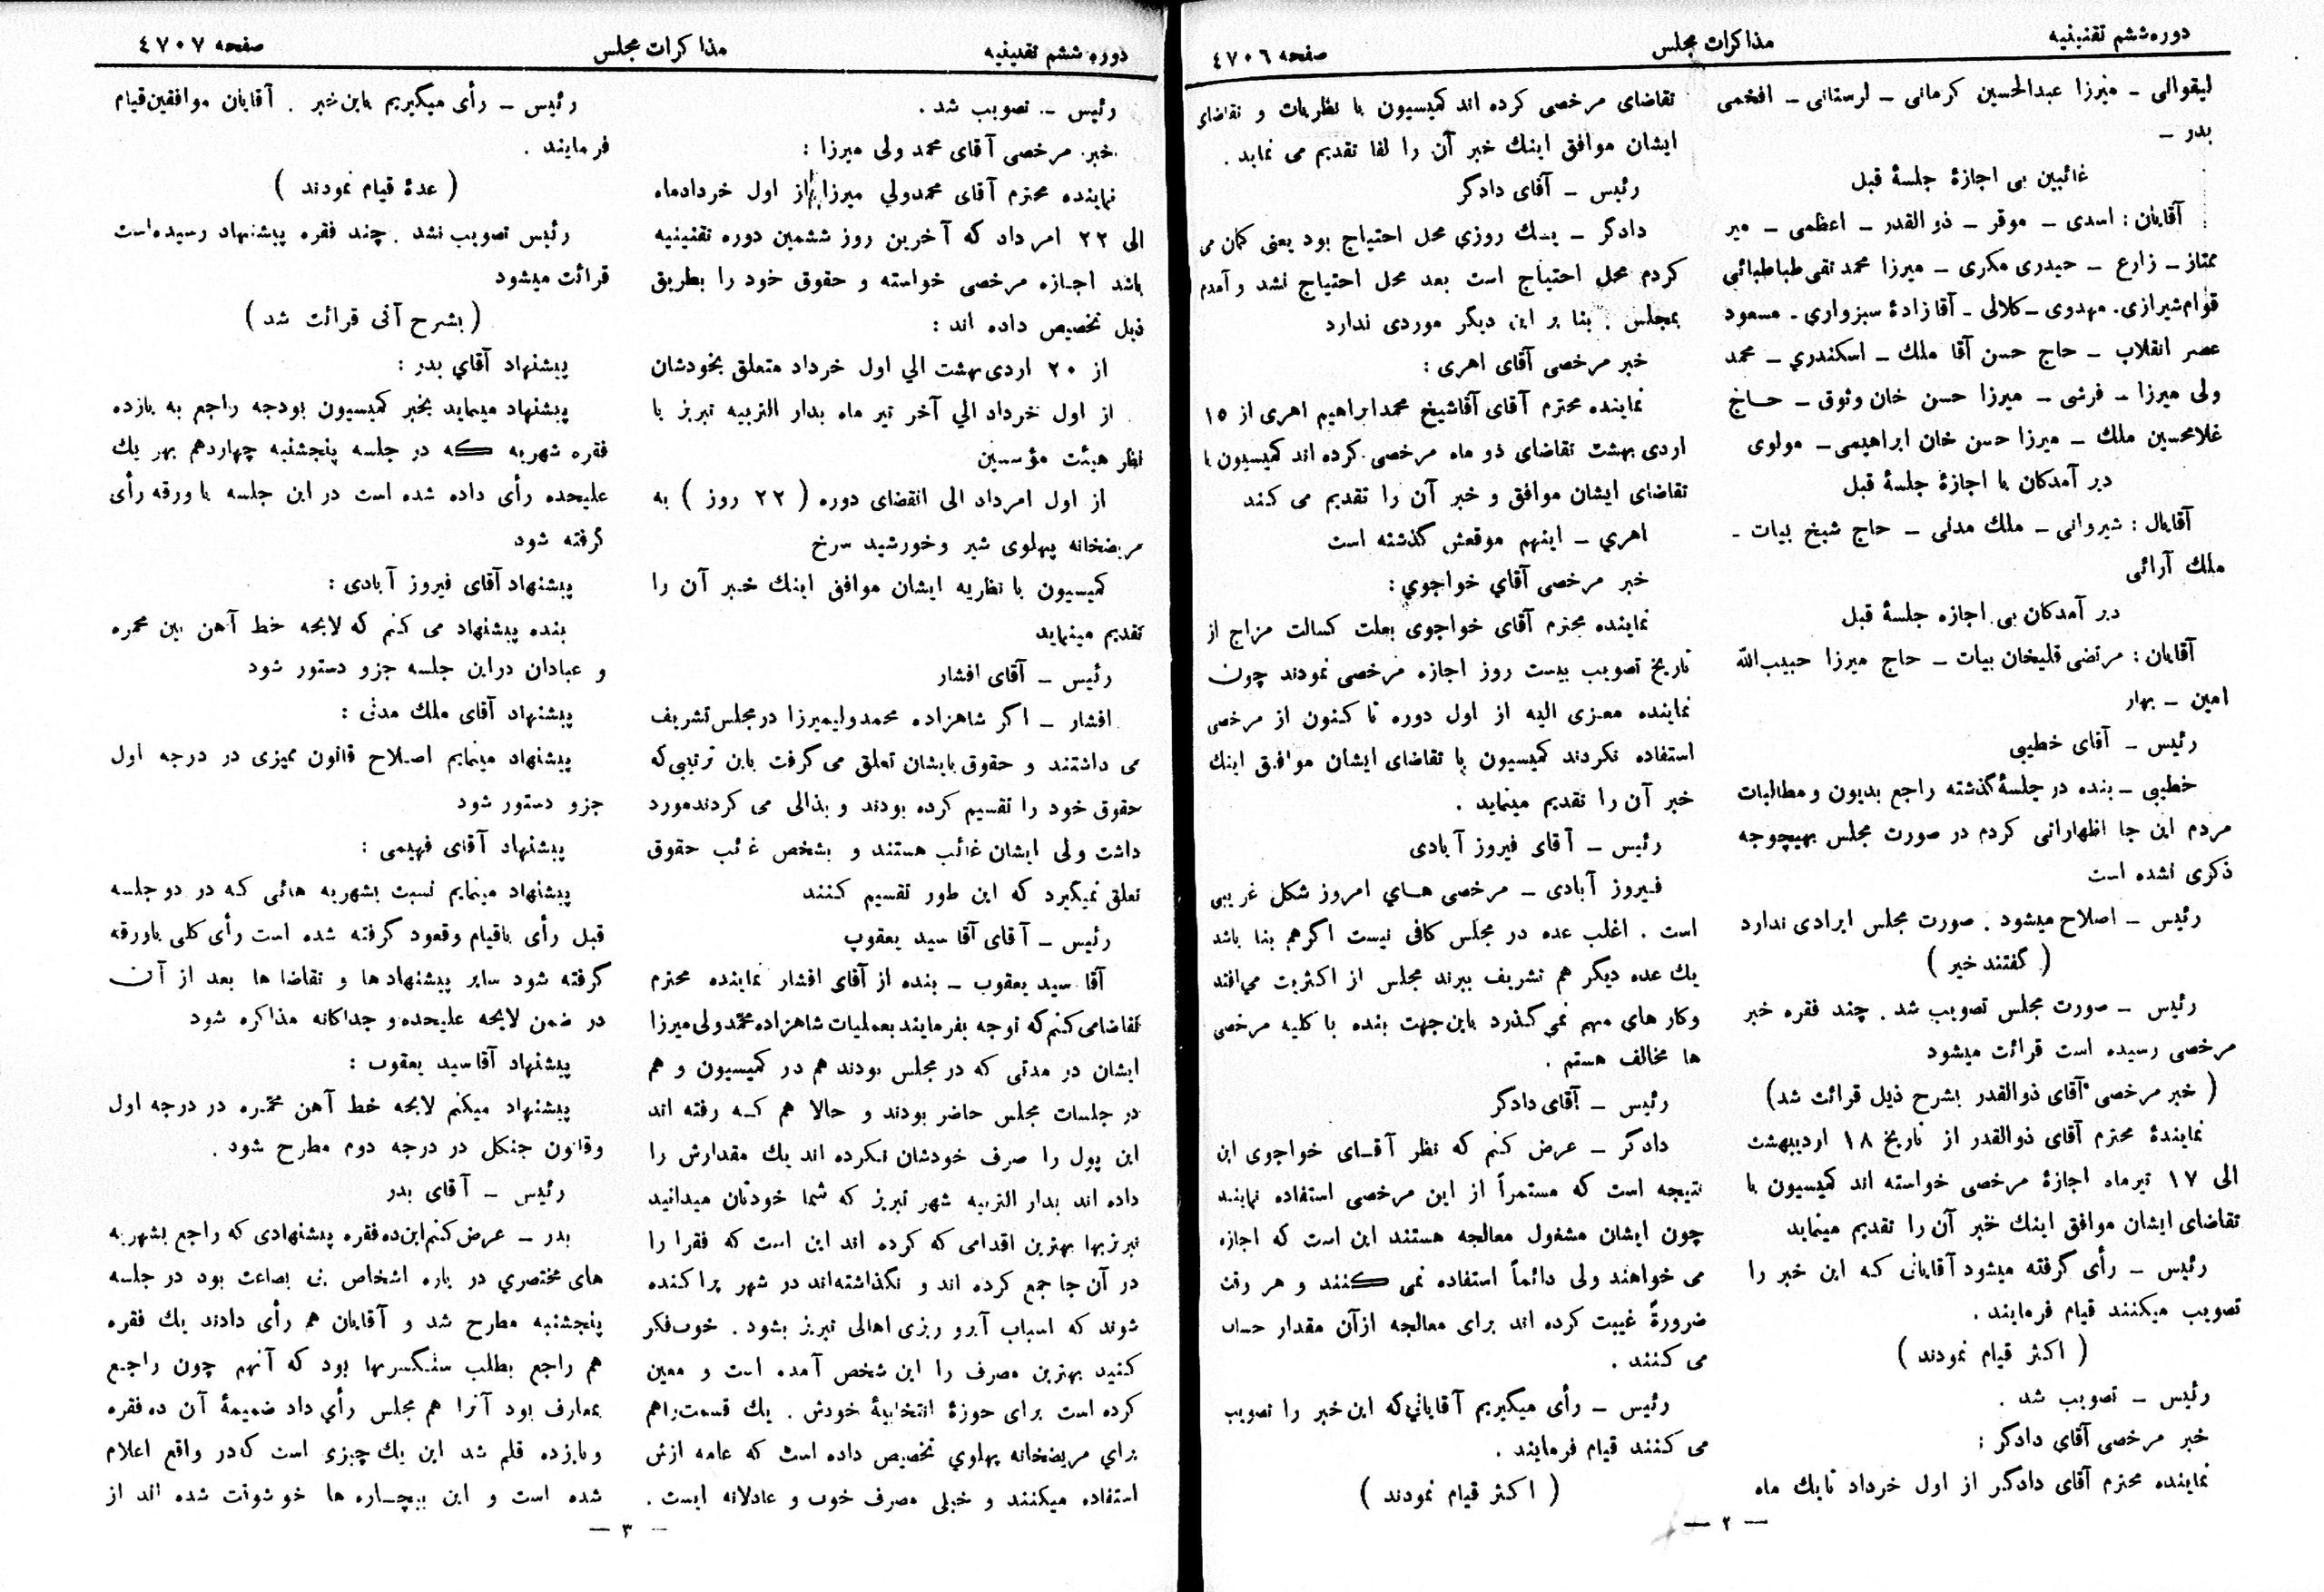 دوره ششم تقنینیه
مذاکرات مجلس
صفحه ٤٧٠٦
لیقوالی ـ میرزا عبدالحسین کرمانی ـ لرستانی ـ افخمی
بدر ـ
غائبین بی اجازهٔ جلسهٔ قبل
آقایان : اسدی ـ موقر ـ ذوالقدر ـ اعظمی ـ میر
ممتاز ـ زارع ـ حیدری مکری ـ میرزا محمد تقی طباطبائی
قوام شیرازی ـ مهدوی ـ کلالی ـ آقا زادهٔ سبزواری ـ مسعود
عصر انقلاب ـ حاج حسن آقا ملك ـ اسکندري ـ محمد
ولی میرزا ـ فرشی ـ میرزا حسن خان وثوق ـ حاج
غلامحسین ملك ـ میرزا حسن خان ابراهیمی ـ مولوی
دیر آمدکان با اجازهٔ جلسهٔ قبل
آقایال : شیروانی ـ ملك مدنی ـ حاج شیخ بیات ـ
ملك آرائی
دیر آمدکان بی اجازه جلسهٔ قبل
آقایان : مرتضی قلیخان بیات ـ حاج میرزا حبیب‌الله
امین ـ بهار
رئیس ـ آقای خطیبی
خطیبی ـ بنده در جلسهٔ گذشته راجع بدیون و مطالبات
مردم این جا اظهاراتی کردم در صورت مجلس بهیچوجه
ذکری نشده است
رئیس ـ اصلاح میشود . صورت مجلس ایرادی ندارد
( گفتند خیر )
رئیس ـ صورت مجلس تصویب شد . چند فقره خبر
مرخصی رسیده است قرائت میشود
( خبر مرخصی آقای ذوالقدر بشرح ذیل قرائت شد )
نمایندهٔ محترم آقای ذوالقدر از تاریخ ١٨ اردیبهشت
الی ١٧ تیرماه اجازهٔ مرخصی خواسته اند کمیسیون با
تقاضای ایشان موافق اینك خبر آن را تقدیم مینماید
رئیس ـ رأی گرفته میشود آقایانی که این خبر را
تصویب میکنند قیام فرمایند .
( اکثر قیام نمودند )
رئیس ـ تصویب شد .
خبر مرخصی آقای دادگر :
نماینده محترم آقای دادگر از اول خرداد تا یك ماه
تقاضای مرخصی کرده اند کمیسیون با نظریات و تقاضای
ایشان موافق اینك خبر آن را لفا تقدیم می نماید .
رئیس ـ آقای دادگر
دادگر ـ یك روزي محل احتیاج بود یعنی گمان می
کردم محل احتیاج است بعد محل احتیاج نشد و آمدم
بمجلس . بنا بر این دیگر موردی ندارد
خبر مرخصی آقای اهری :
نماینده محترم آقای آقاشیخ محمد ابراهیم اهری از ١٥
اردی بهشت تقاضای دو ماه مرخصی کرده اند کمیسیون با
تقاضای ایشان موافق و خبر آن را تقدیم می کند
اهري ـ اینهم موقعش گذشته است
خبر مرخصی آقاي خواجوي :
نماینده محترم آقای خواجوی بعلت کسالت مزاج از
تاریخ تصویب بیست روز اجازه مرخصی نمودند چون
نماینده معزی الیه از اول دوره تا کنون از مرخصی
استفاده نکردند کمیسیون با تقاضای ایشان موافق اینك
خبر آن را تقدیم مینماید .
رئیس ـ آقای فیروز آبادی
فیروز آبادی ـ مرخصی هاي امروز شکل غریبی
است . اغلب عده در مجلس کافی نیست اگر هم بنا باشد
یك عده دیگر هم تشریف ببرند مجلس از اکثریت می‌افتد
و کار های مهم نمی گذرد باین جهت بنده با کلیه مرخصی
ها مخالف هستم .
رئیس ـ آقای دادگر
دادگر ـ عرض کنم که نظر آقای خواجوی این
نتیجه است که مستمراً از این مرخصی استفاده نمایند
چون ایشان مشغول معالجه هستند این است که اجازه
می خواهند ولی دائماً استفاده نمی کنند و هر وقت
ضرورةً غیبت کرده اند برای معالجه از آن مقدار حساب
می کنند .
رئیس ـ رأی میگیریم آقایاني که این خبر را تصویب
می کنند قیام فرمایند .
( اکثر قیام نمودند )
ـ ٢ ـ
دوره ششم تقنینیه
مذاکرات مجلس
صفحه ٤٧٠٧
رئیس ـ تصویب شد .
خبر مرخصی آقای محمد ولی میرزا :
نماینده محترم آقای محمدولي میرزا از اول خردادماه
الی ٢٢ امرداد که آخرین روز ششمین دوره تقنینیه
باشد اجازه مرخصی خواسته و حقوق خود را بطریق
ذیل تخصیص داده اند :
از ٢٠ اردی بهشت الي اول خرداد متعلق بخودشان
از اول خرداد الي آخر تیر ماه بدار التربیه تبریز با
نظر هیئت مؤسسین
از اول امرداد الی انقضای دوره ( ٢٢ روز ) به
مریضخانه پهلوی شیر و خورشید سرخ
کمیسیون با نظریه ایشان موافق اینك خبر آن را
تقدیم مینماید
رئیس ـ آقای افشار
افشار ـ اگر شاهزاده محمدولیمیرزا در مجلس تشریف
می داشتند و حقوق بایشان تعلق می گرفت باین ترتیبی که
حقوق خود را تقسیم کرده بودند و بذالی می کردند مورد
داشت ولی ایشان غائب هستند و بشخص غائب حقوق
تعلق نمیگیرد که این طور تقسیم کنند
رئیس ـ آقای آقا سید یعقوب
آقا سید یعقوب ـ بنده از آقای افشار نماینده محترم
تقاضا می کنم که توجه بفرمایند بعملیات شاهزاده محمدولی میرزا
ایشان در مدتی که در مجلس بودند هم در کمیسیون و هم
در جلسات مجلس حاضر بودند و حالا هم که رفته اند
این پول را صرف خودشان نکرده اند یك مقدارش را
داده اند بدار التربیه شهر تبریز که شما خودتان میدانید
تبریزیها بهترین اقدامی که کرده اند این است که فقرا را
در آن جا جمع کرده اند و نگذاشته‌اند در شهر پراکنده
شوند که اسباب آبرو ریزی اهالی تبریز بشود . خوب فکر
کنید بهترین مصرف را این شخص آمده است و معین
کرده است برای حوزهٔ انتخابیهٔ خودش . یك قسمت را هم
براي مریضخانه پهلوي تخصیص داده است که عامه ازش
استفاده میکنند و خیلی مصرف خوب و عادلانه ایست .
رئیس ـ رأی میگیریم باین خبر . آقایان موافقین قیام
فرمایند .
( عدهٔ قیام نمودند )
رئیس تصویب نشد . چند فقره پیشنهاد رسیده است
قرائت میشود
( بشرح آتی قرائت شد )
پیشنهاد آقاي بدر :
پیشنهاد مینماید بخبر کمیسیون بودجه راجع به یازده
فقره شهریه که در جلسه پنجشنبه چهاردهم بهر یك
علیحده رأی داده شده است در این جلسه با ورقه رأی
گرفته شود
پیشنهاد آقای فیروز آبادی :
بنده پیشنهاد می کنم که لایحه خط آهن بین محمره
و عبادان در این جلسه جزو دستور شود
پیشنهاد آقای ملك مدنی :
پیشنهاد مینمایم اصلاح قانون ممیزی در درجه اول
جزو دستور شود
پیشنهاد آقای فهیمی :
پیشنهاد مینمایم نسبت بشهریه هائی که در دو جلسه
قبل رأی باقیام وقعود گرفته شده است رأی کلی باورقه
گرفته شود سایر پیشنهاد ها و تقاضا ها بعد از آن
در ضمن لایحه علیحده و جداگانه مذاکره شود
پیشنهاد آقا سید یعقوب :
پیشنهاد میکنم لایحه خط آهن محمره در درجه اول
وقانون جنگل در درجه دوم مطرح شود .
رئیس ـ آقای بدر
بدر ـ عرض کنم این ده فقره پیشنهادی که راجع بشهریه
های مختصري در باره اشخاص بی بضاعت بود در جلسه
پنجشنبه مطرح شد و آقایان هم رأی دادند یك فقره
هم راجع بطلب سنگسریها بود که آنهم چون راجع
بمعارف بود آنرا هم مجلس رأي داد ضمیمهٔ آن ده فقره
و یازده قلم شد این یك چیزی است که در واقع اعلام
شده است و این بیچاره ها خوشوقت شده اند از
ـ ٣ ـ